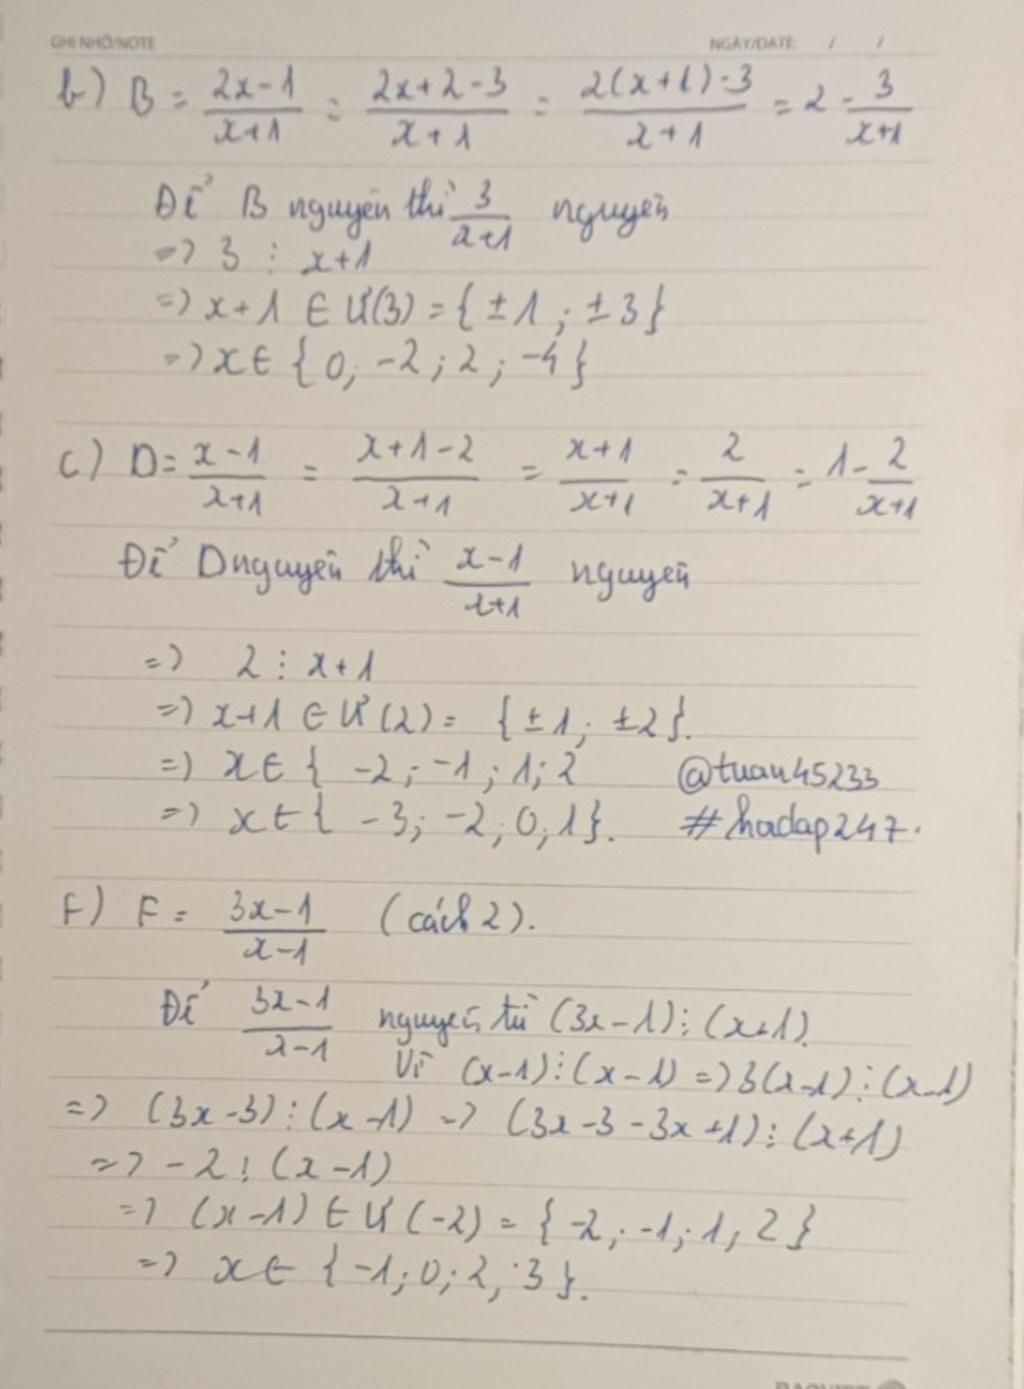 GHI NHỚ/NOTE NGÀY/DATE: / /
b) B = \frac{2x-1}{x+1} = \frac{2x+2-3}{x+1} = \frac{2(x+1)-3}{x+1} = 2 - \frac{3}{x+1}
Để B nguyên thì \frac{3}{x+1} nguyên
=> 3 ⋮ x+1
=> x+1 ∈ Ư(3) = {±1; ±3}
=> x ∈ {0; -2; 2; -4}
c) D = \frac{x-1}{x+1} = \frac{x+1-2}{x+1} = \frac{x+1}{x+1} - \frac{2}{x+1} = 1 - \frac{2}{x+1}
Để D nguyên thì \frac{x-1}{x+1} nguyên
=> 2 ⋮ x+1
=> x+1 ∈ Ư(2) = {±1; ±2}.
=> x ∈ { -2; -1; 1; 2 @tuan45233
=> x ∈ { -3; -2; 0; 1}. #hoidap247.
F) F = \frac{3x-1}{x-1} (cách 2).
Để \frac{3x-1}{x-1} nguyên từ (3x-1) ⋮ (x+1).
Vì (x-1) ⋮ (x-1) => 3(x-1) ⋮ (x-1)
=> (3x-3) ⋮ (x-1) => (3x-3-3x+1) ⋮ (x+1)
=> -2 ⋮ (x-1)
=> (x-1) ∈ Ư(-2) = {-2; -1; 1; 2}
=> x ∈ {-1; 0; 2; 3}.